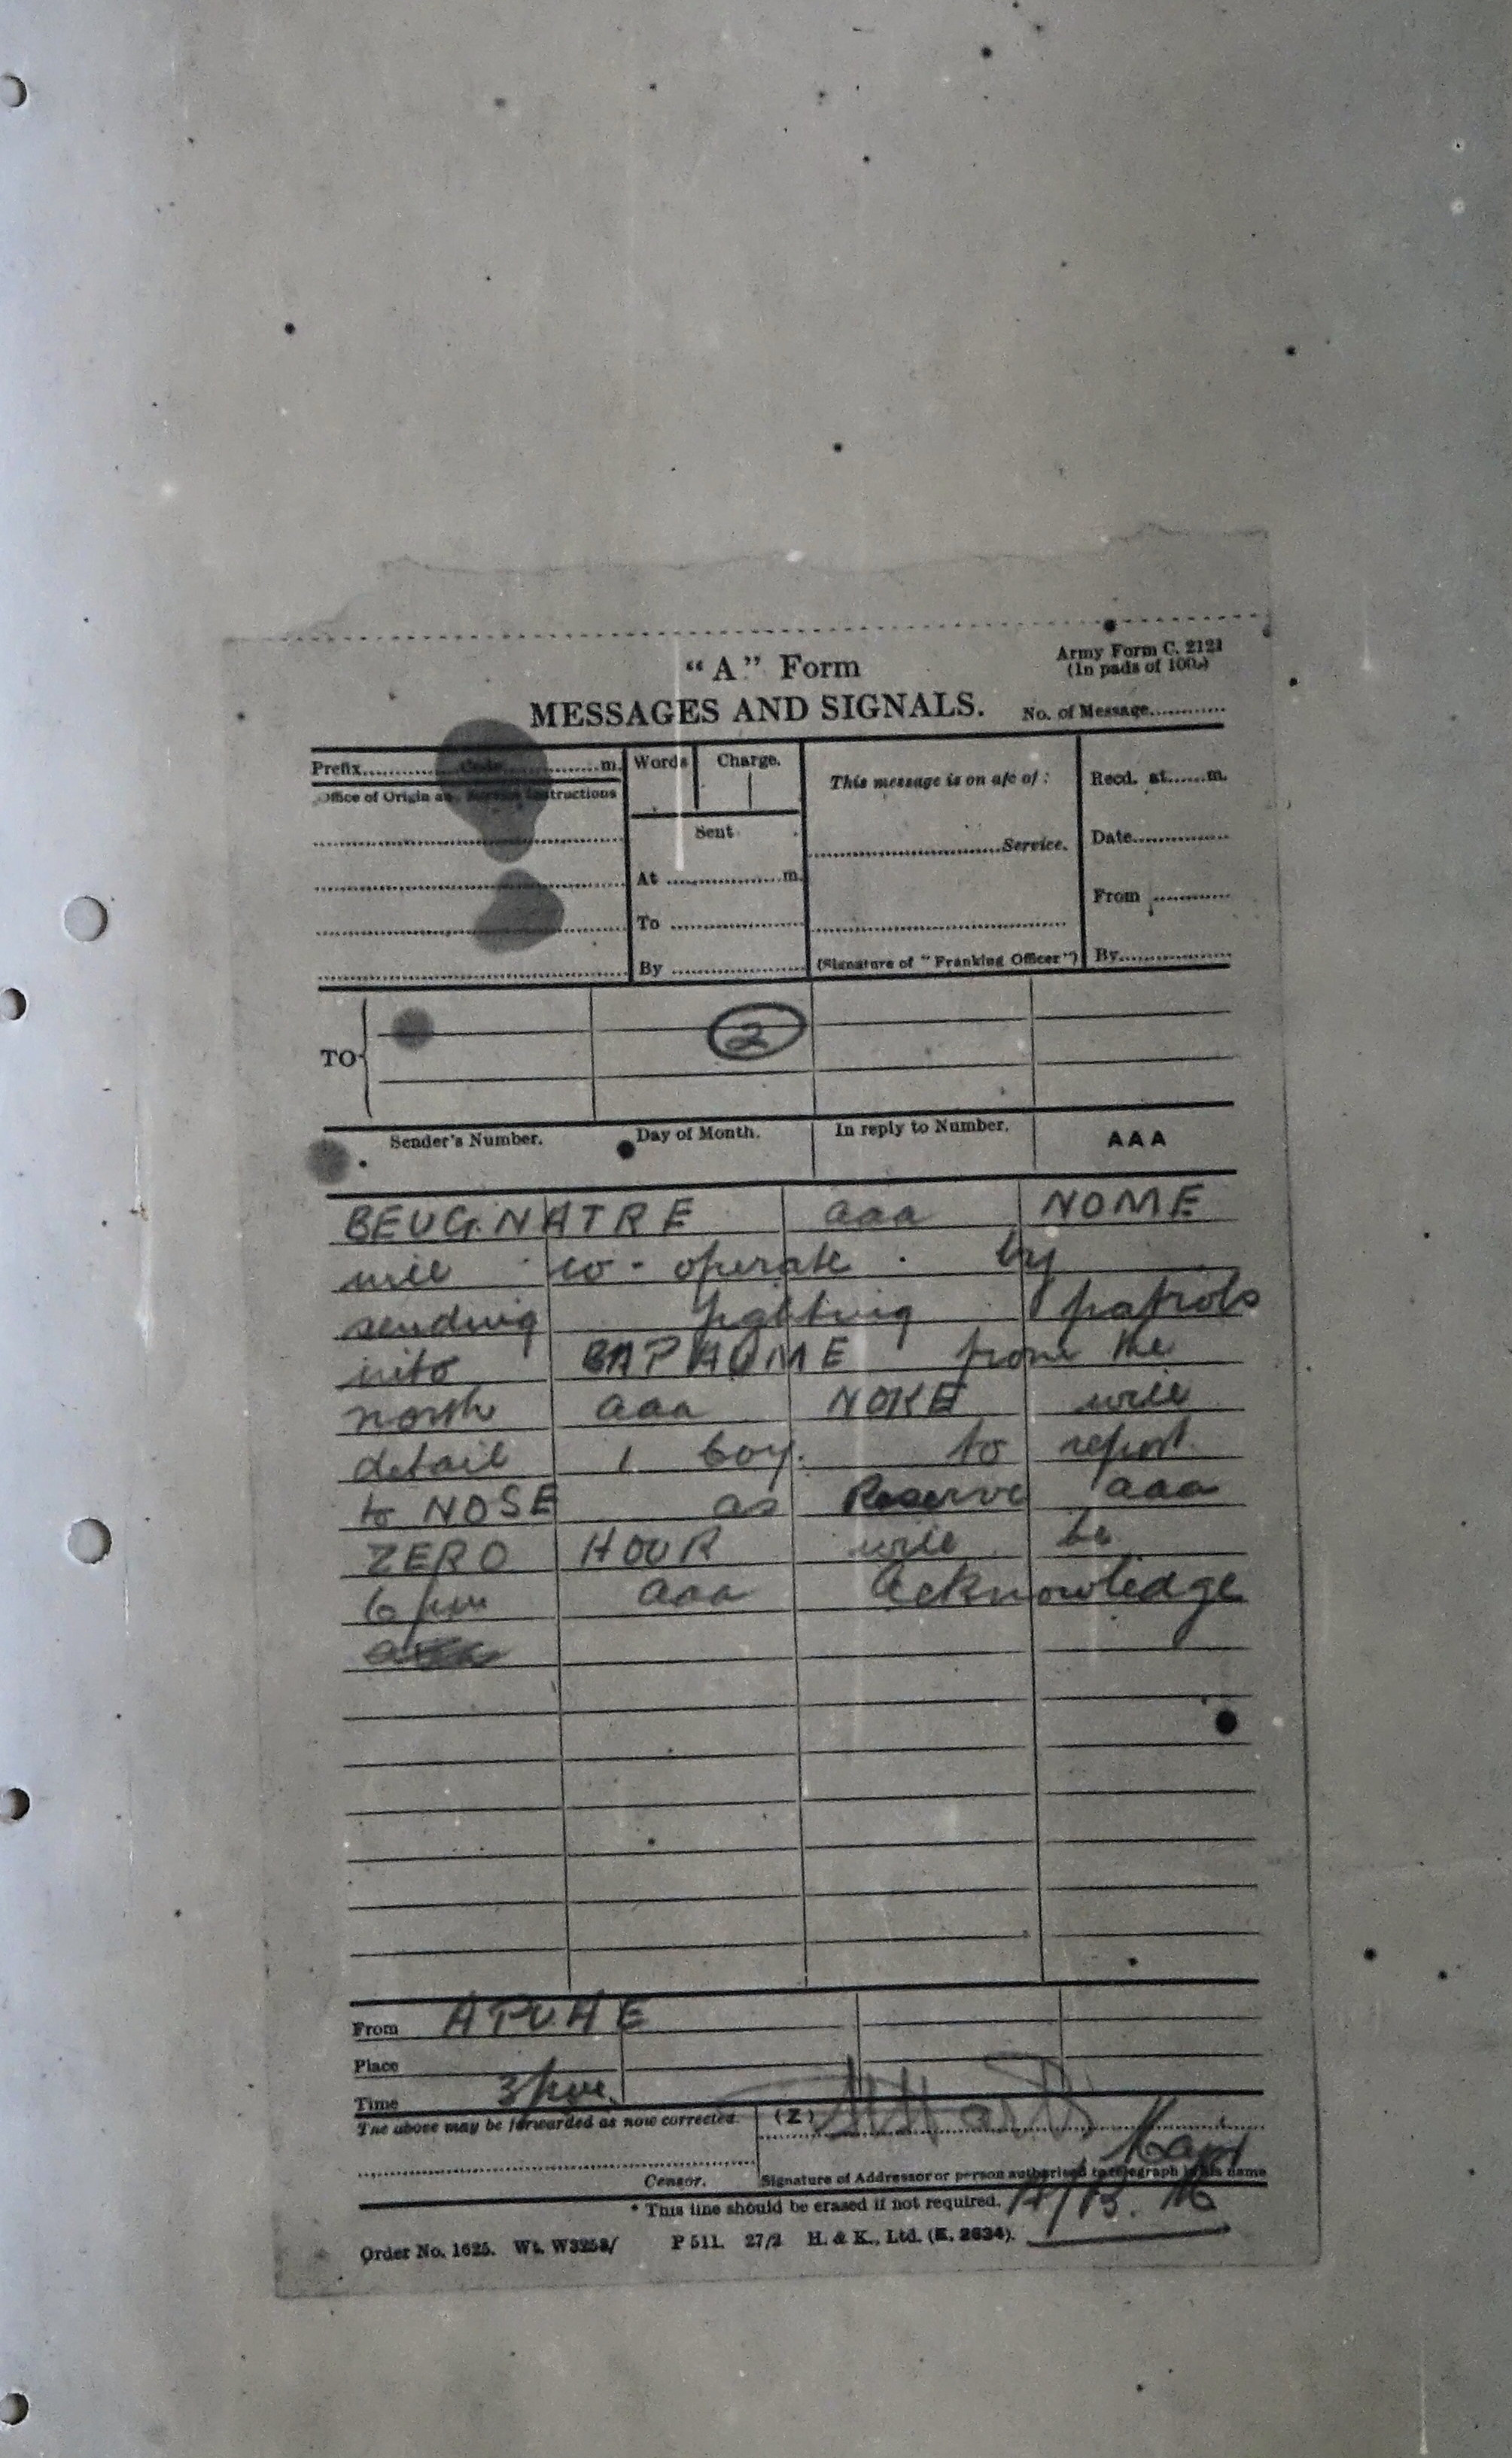 "A" Form
Army Form C. 2121
(In pads of 100.)
MESSAGES AND SIGNALS.
No. of Message............
Prefix............Code............m.
Words
Charge.
This message is on a/c of :
Recd. at......m.
Office of Origin and Service Instructions
Sent
............Service.
Date............
At ............m.
From ............
To ............
By ............
(Signature of "Franking Officer")
By............
TO
2
Sender's Number.
Day of Month.
In reply to Number.
AAA
BEUGNATRE aaa NOME
will co-operate by
sending fighting patrols
into BAPAUME from the
north aaa NOKE will
detail 1 Coy. to report
to NOSE as Reserve aaa
ZERO HOUR will be
6 pm aaa acknowledge
From
Place
Time 3 pm.
The above may be forwarded as now corrected.
(Z)
Capt
Censor.
Signature of Addressor or person authorised to telegraph in his name
* This line should be erased if not required.
Order No. 1625. Wt. W3253/ P 511. 27/2 H. & K., Ltd. (E. 2634).